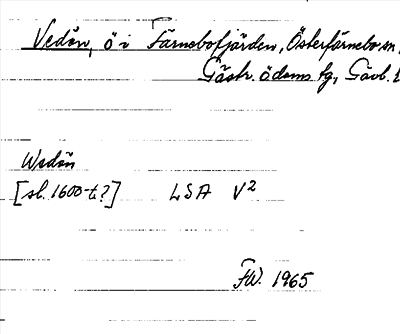 Vedön, ö i Färnebofjärden, Österfärnebo sn,
Gästr. ödems tg, Gävl. l
Wedön
[sl. 1600-t.?] LSA V²
FW. 1965